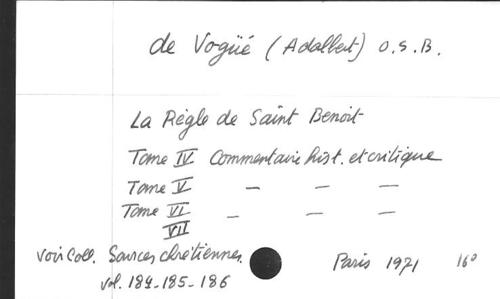 de Vogüé (Adalbert) O.S.B.
La Règle de Saint Benoit
Tome IV Commentaire hist. et critique
Tome V — — —
Tome VI — — —
VII
voir Coll. Sources chrétiennes. Paris 1971 16°
vol. 184-185-186